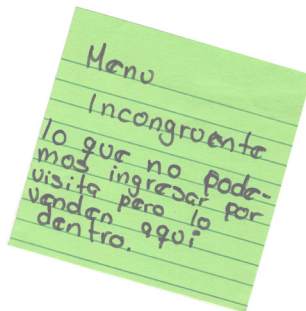 Menu
Incongruente
lo que no pode-
mos ingresar por
visita pero lo
venden aqui
dentro.